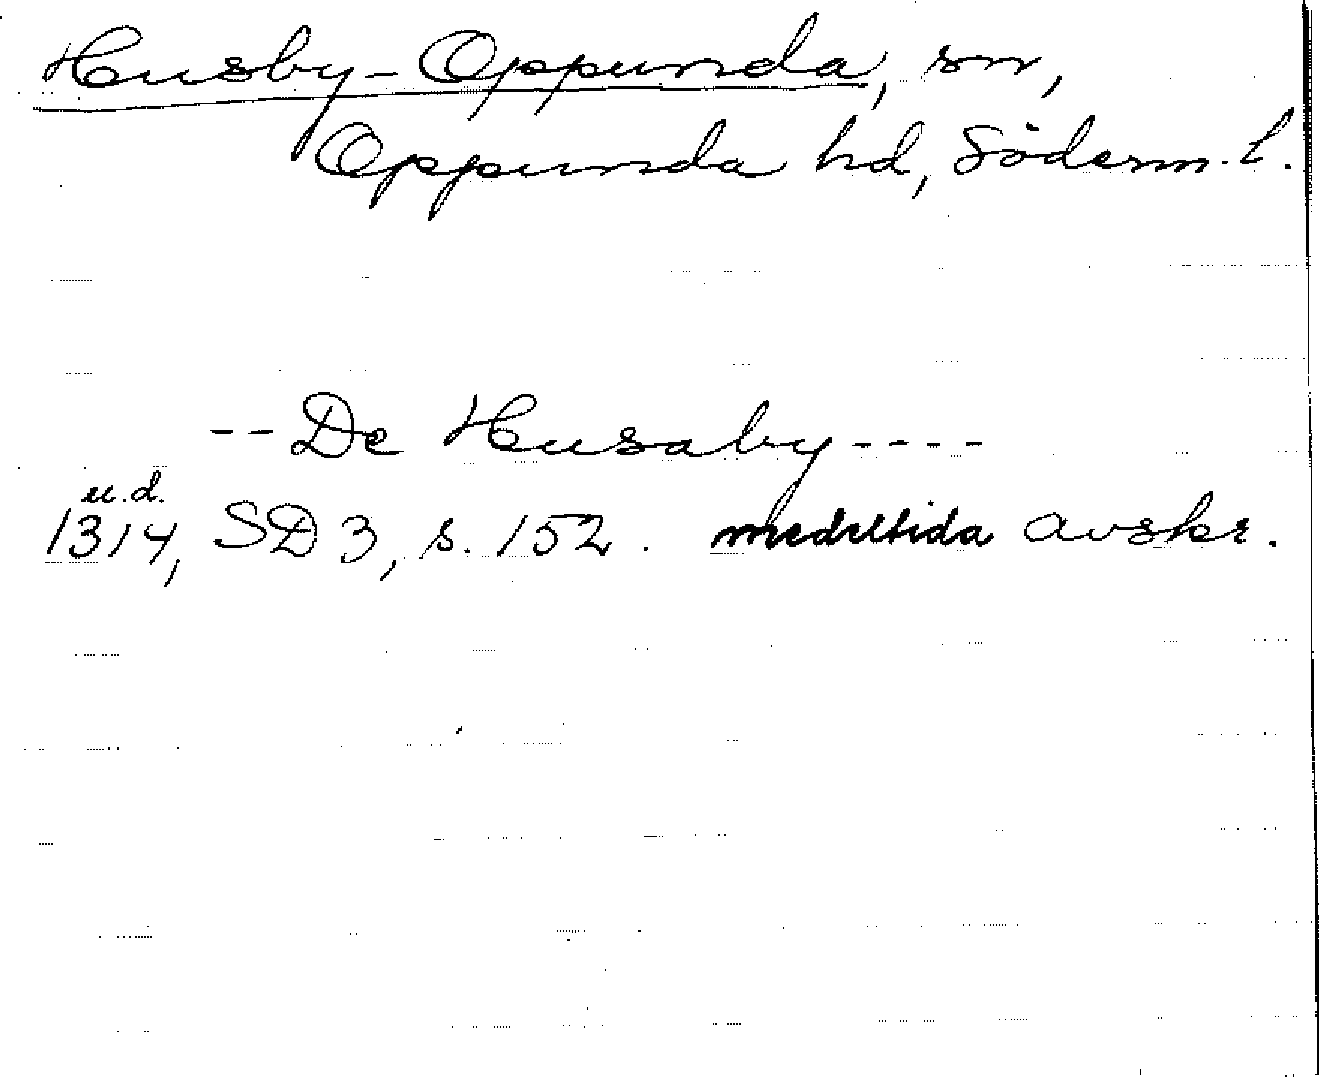 Husby-Oppunda, sn,
Oppunda hd, Söderm. l.
-- De Husaby ----
u.d.
1314, SD 3, s. 152. medeltida avskr.